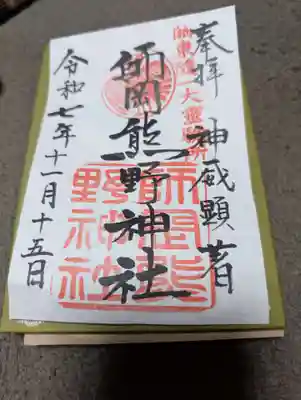 奉拝 神威顕著
関東随一大霊験所
師岡熊野神社
師岡熊野神社
令和七年十一月十五日